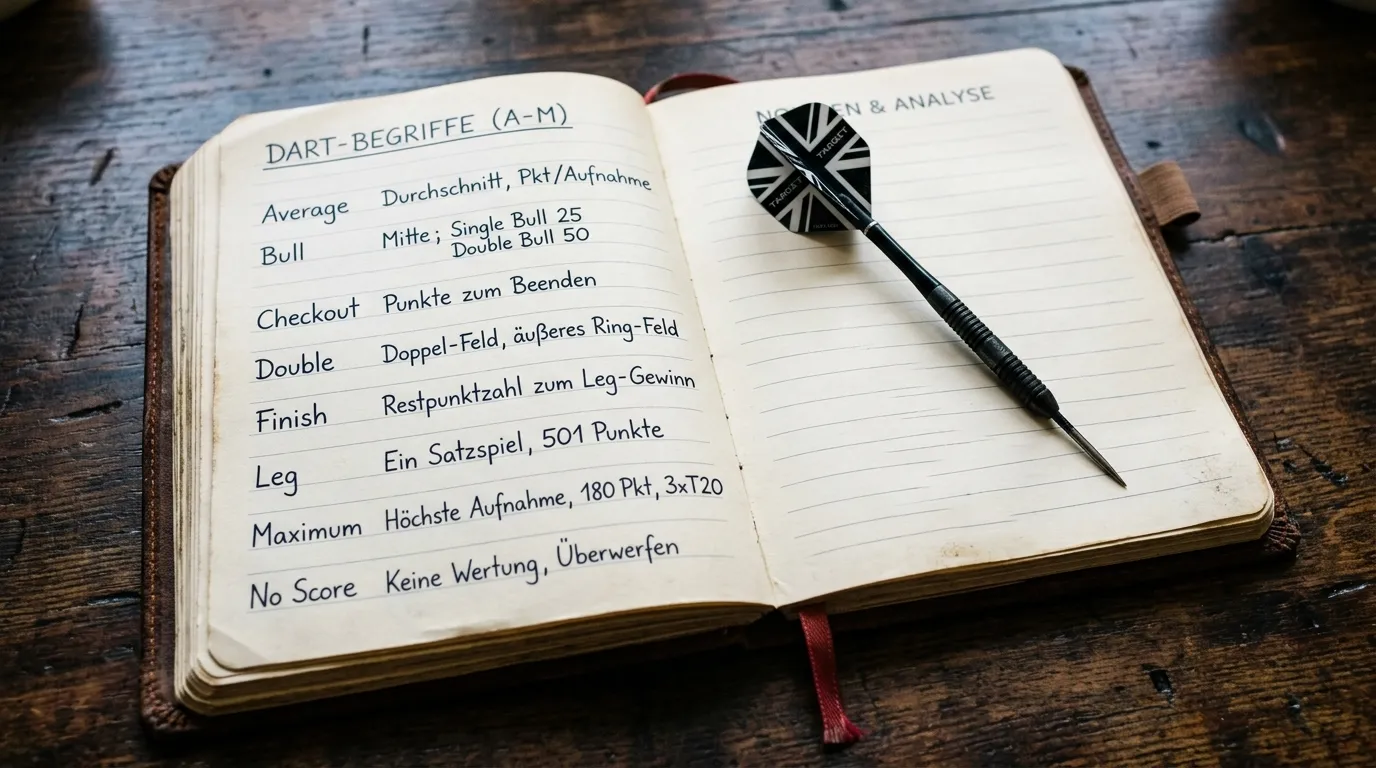 DART-BEGRIFFE (A-M)
Average Durchschnitt, Pkt/Aufnahme
Bull Mitte; Single Bull 25
Double Bull 50
Checkout Punkte zum Beenden
Double Doppel-Feld, äußeres Ring-Feld
Finish Restpunktzahl zum Leg-Gewinn
Leg Ein Satzspiel, 501 Punkte
Maximum Höchste Aufnahme, 180 Pkt, 3xT20
No Score Keine Wertung, Überwerfen
& ANALYSE
TARGET
TARGET